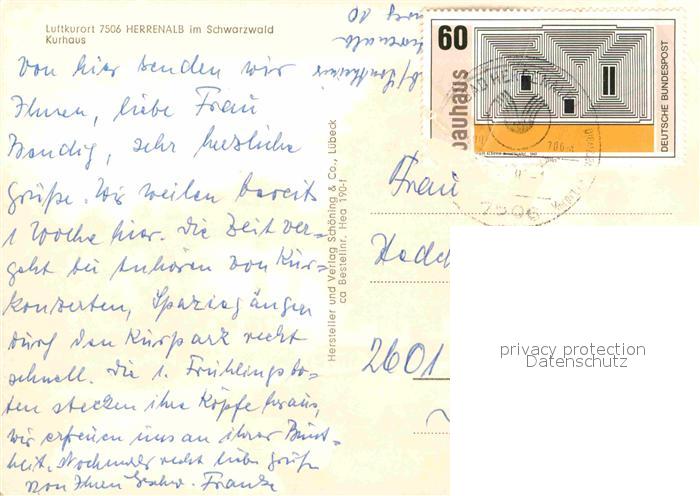 Luftkurort 7506 HERRENALB im Schwarzwald
Kurhaus
Von hier senden wir
Ihnen, liebe Frau
sehr herzliche
Grüße. Wir weilen bereits
1 Woche hier. Die Zeit ver=
geht bei Anhören von Kur=
konzerten, Spaziergängen
durch den Kurpark recht
schnell. Die 1. Frühlingsbo=
ten stecken ihre Köpfe heraus,
wir erfreuen uns an ihrer Bunt=
heit. Nochmals recht liebe Grüße
von Ihren Franke
Hersteller und Verlag Schöning & Co., Lübeck
ca Bestellnr. Hea 190-f
60
bauhaus
DEUTSCHE BUNDESPOST
7506
Frau
2601
privacy protection
Datenschutz